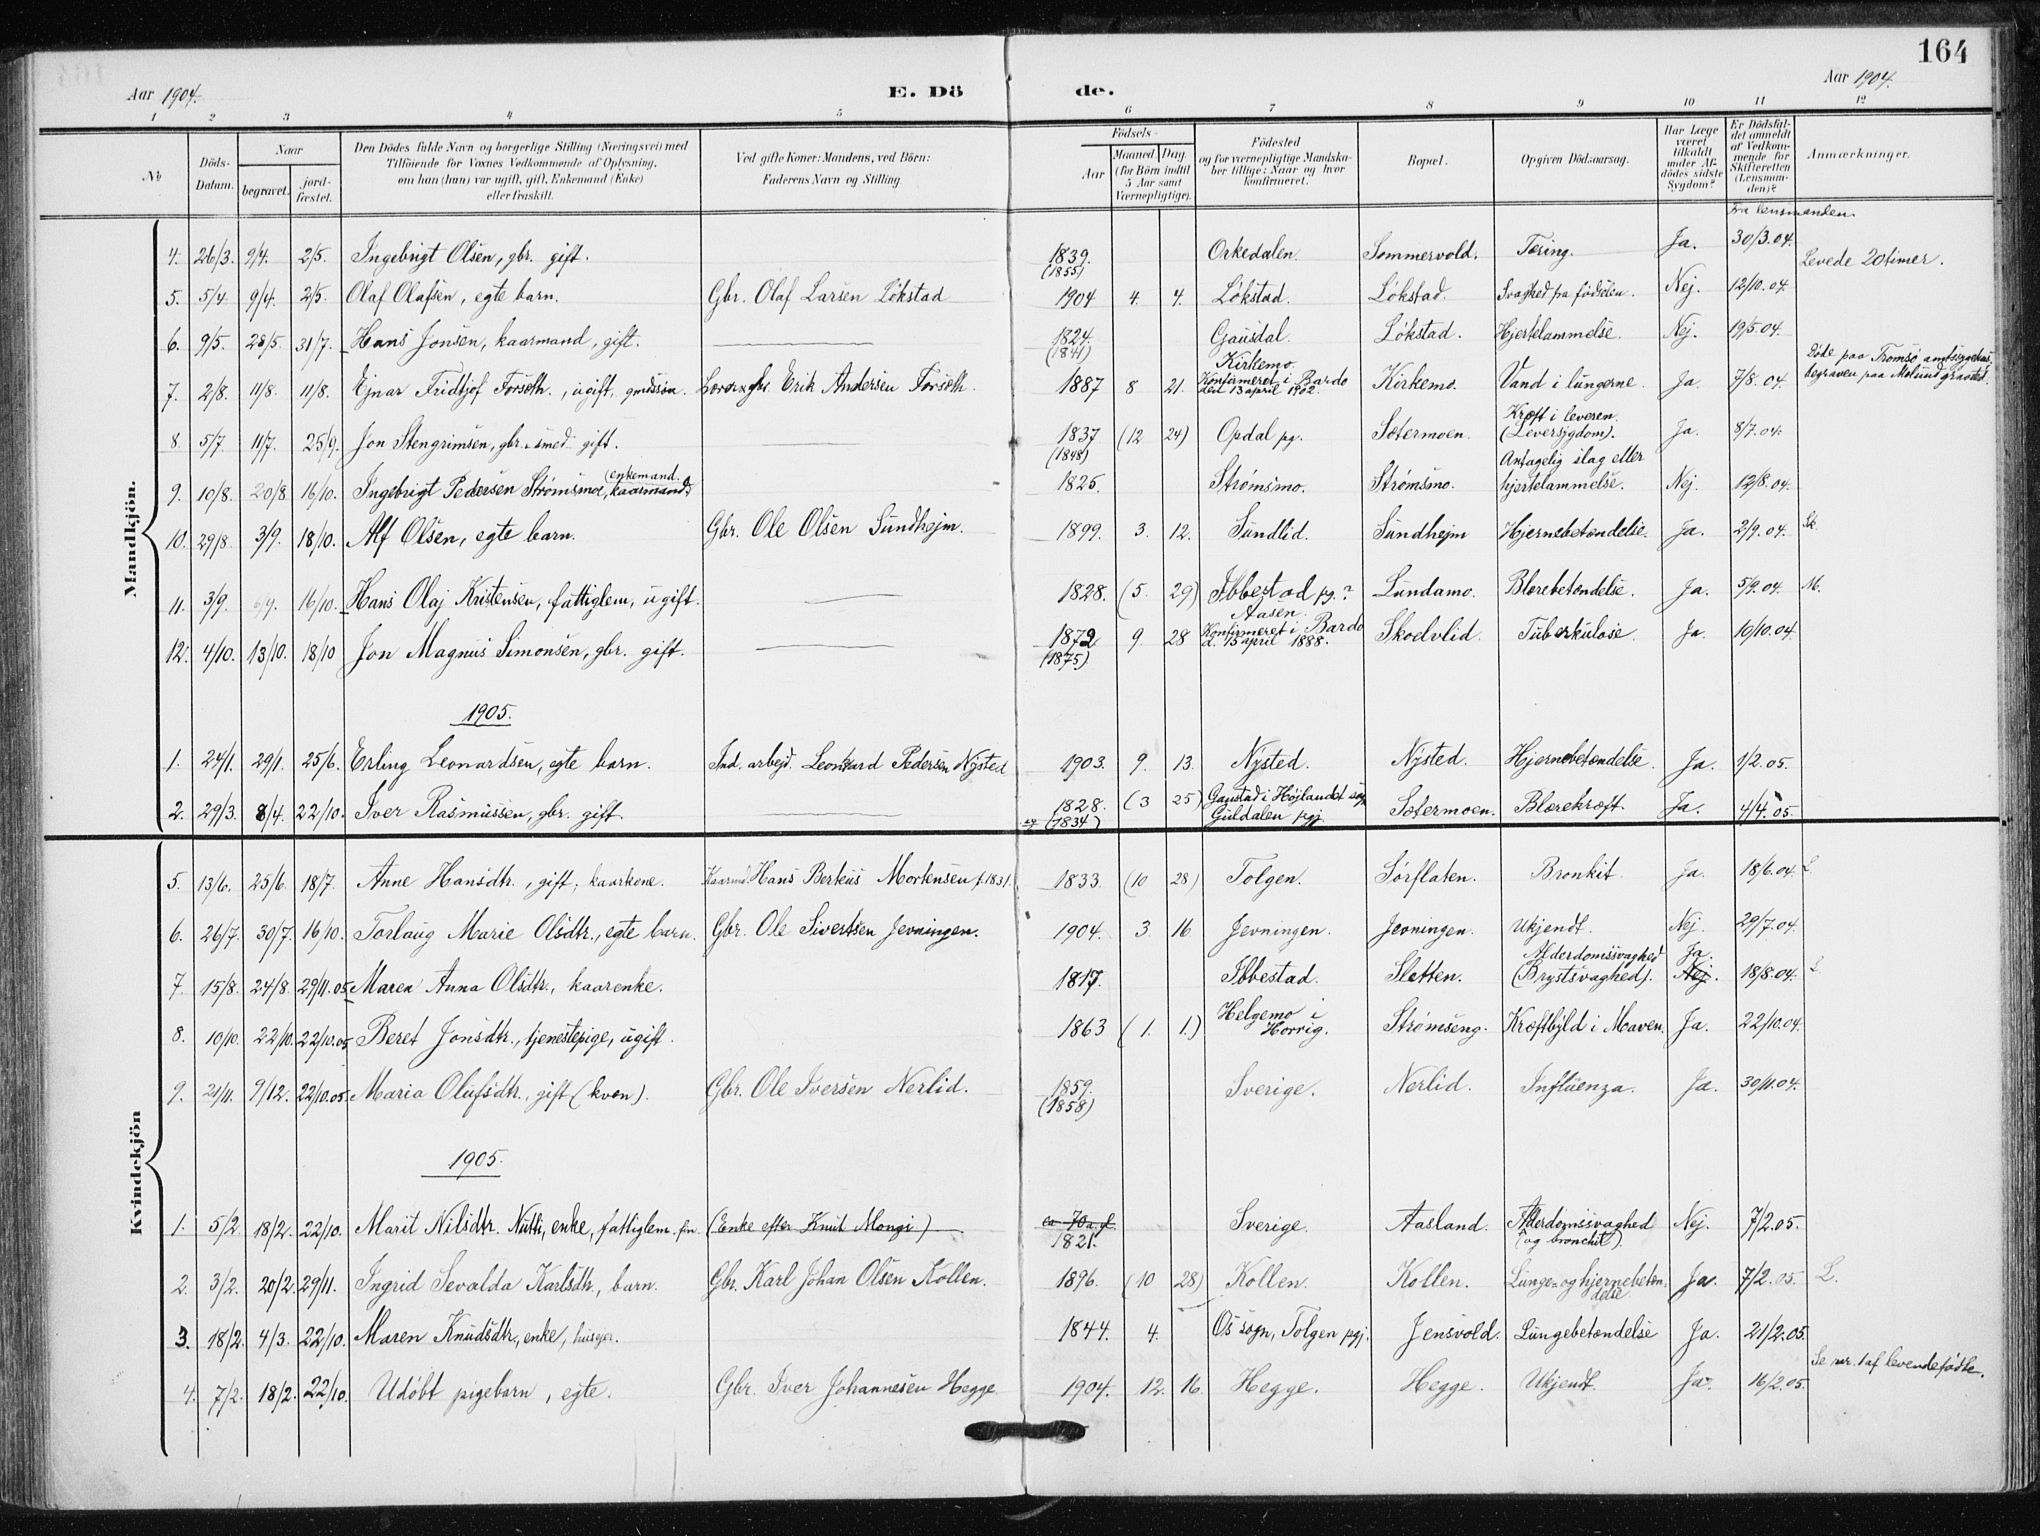 164
Aar 1904.
E. Dö
de.
Aar 1904.
1 2 3 4 5 6 7 8 9 10 11 12
No
Döds-Datum.
Naar
begravet.
jord-fæstet.
Den Dödes fulde Navn og borgerlige Stilling (Næringsvei) med
Tilföiende for Voxnes Vedkommende af Oplysning,
om han (hun) var ugift, gift, Enkemand (Enke)
eller fraskilt.
Ved gifte Koner: Mandens, ved Börn:
Faderens Navn og Stilling.
Födsels-
Aar
Maaned Dag.
(for Börn indtil
5 Aar samt
Værnepligtige).
Födested
og for værnepligtige Mandska-
ber tillige: Naar og hvor
konfirmeret.
Bopæl.
Opgiven Dödsaarsag.
Har Læge
været
tilkaldt
under Af-
dödes sidste
Sygdom?
Er Dödsfal-
det anmeldt
af Vedkom-
mende for
Skifteretten
(Lensman-
den)?
Anmærkninger.
Mandkjön.
Fra lensmanden.
4. 26/3. 9/4. 2/5. Ingebrigt Olsen, gbr. gift. 1839. (1855) Orkedalen. Sommervold. Tæring. Ja. 30/3.04.
Levede 20 timer.
5. 5/4. 9/4. 2/5. Olaf Olafsen, egte barn. Gbr. Olaf Larsen Løkstad 1904 4. 4. Løkstad. Løkstad. Svaghed fra fødselen. Nej. 12/10.04.
6. 9/5. 28/5. 31/7. Hans Jonsen, kaarmand, gift. 1824. (1841) Gausdal. Løkstad. Hjertelammelse. Nej. 19/5.04.
7. 2/8. 11/8. 11/8. Ejnar Fridtjof Forseth., ugift, Erik Andersen Forseth. 1887 8 21. Kirkemo. Konfirmeret i Bardo 13 april 1902. Kirkemo. Vand i lungerne. Ja. 7/8.04. Døde paa Tromsø amtssygehus, begraven paa Mælund gravsted.
8. 5/7. 11/7. 25/9. Jon Stengrimsen, gbr. smed gift. 1837 (1848) (12 24) Opdal pg. Sætermoen. Kræft i leveren. (Leversygdom). Ja. 8/7.04.
9. 10/8. 20/8. 16/10. Ingebrigt Pedersen Strømsmo, (enkemand. kaarmand) 1825. Strømsmo. Strømsmo. Antagelig slag eller hjertelammelse. Nej. 12/8.04.
10. 29/8 3/9. 18/10. Alf Olsen, egte barn. Gbr. Ole Olsen Sundhejm. 1899. 3. 12. Sundlid. Sundhejm Hjernebetændelse. Ja. 2/9.04.
11. 3/9. 6/9. 16/10. Hans Olaj Kristensen, fattiglem, ugift. 1828. (5. 29) Ibbestad pg.? Lundamo. Blærebetændelse. Ja. 5/9.04. M.
12. 4/10. 13/10. 18/10 Jon Magnus Simonsen, gbr. gift. 1872 (1875) 9. 28 Aasen. Konfirmeret i Bardo d. 15 april 1888. Skoelvlid. Tuberkulose. Ja. 10/10.04.
1905.
1. 24/1. 29/1. 25/6. Erling Leonardsen, egte barn. Ind. arbejd. Leonhard Pedersen Nysted 1903. 9. 13. Nysted. Nysted. Hjernebetændelse. Ja. 1/2.05.
2. 29/3. 8/4. 22/10. Iver Rasmussen, gbr. gift. 1828. (1834) (3 25) Gaustad i Højlandet sogn Guldalen pgj. Sætermoen. Blærekræft. Ja. 4/4.05.
Kvindekjön
5. 13/6. 25/6. 18/7. Anne Hansdtr., gift, kaarkone. Kaarmd. Hans Berteus Mortensen f. 1831. 1833. (10 28) Tolgen. Sørflaten. Bronkit. Ja. 18/6.04. L
6. 26/7. 30/7. 16/10. Torlaug Marie Olsdtr., egte barn. Gbr. Ole Sivertsen Jevningen. 1904. 3. 16 Jevningen. Jevningen. Ukjendt. Nej. 29/7.04.
7. 15/8. 24/8. 29/11.05 Maren Anna Olsdtr., kaarenke. 1817. Ibbestad. Sletten. Alderdomssvaghed (Brystsvaghed). Ja. Nej. 18/8.04. L
8. 10/10. 22/10. 22/10.05 Beret Jonsdtr., tjenestepige, ugift. 1863 (1. 1.) Helgemo i Horrig. Strømseng. Kræftbyld i Maven. Ja. 22/10.04.
9. 21/11. 9/12. 22/10.05. Maria Olufsdtr., gift (kven). Gbr. Ole Iversen Nerlid. 1859. (1858) Sverige. Nerlid. Influenza. Ja. 30/11.04.
1905.
1. 5/2. 18/2. 22/10. Marit Nilsdtr. Nutti, enke, fattiglem. fin. (Enke efter Knut Mongi) 1821. Sverige. Aasland. Alderdomssvaghed (og bronchit). Nej. 7/2.05.
2. 3/2. 20/2. 29/11. Ingrid Sevalda Karlsdtr., barn. Gbr. Karl Johan Olsen Kollen. 1896. (10 28) Kollen. Kollen. Lunge- og hjernebetændelse. Ja. 7/2.05. L.
3. 18/2. 4/3. 22/10. Maren Knudsdtr., enke, 1844. 4. Os sogn, Tolgen pgj. Jensvold. Lungebetændelse Ja. 21/2.05.
Se nr. 1 af levendefødte.
4. 7/2. 18/2. 22/10. Udøbt pigebarn, egte. Gbr. Iver Johannesen Hegge 1904. 12. 16. Hegge. Hegge. Ukjendt. Ja. 16/2.05.